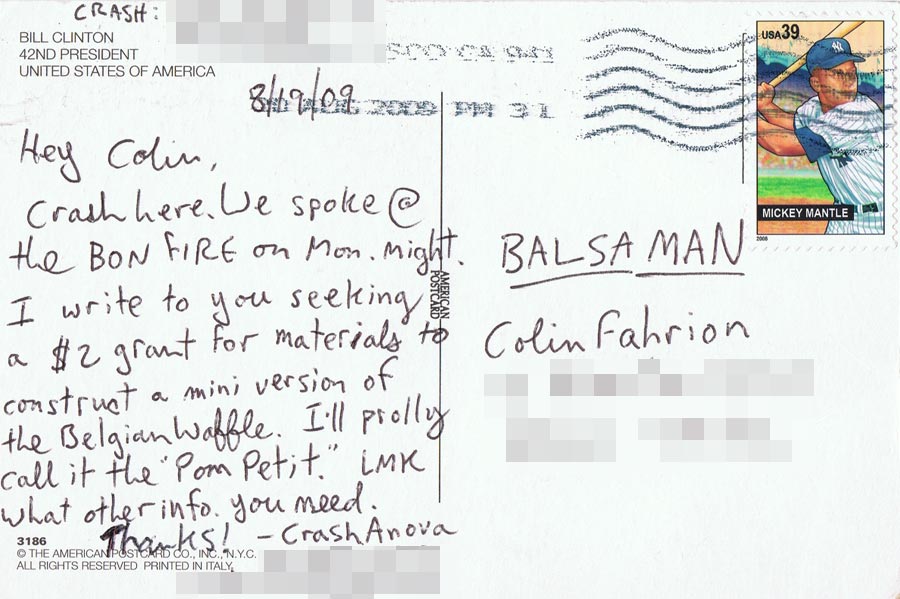 CRASH:
BILL CLINTON
42ND PRESIDENT
UNITED STATES OF AMERICA
8/19/09
Hey Colin,
Crash here. We spoke @
the BON FIRE on Mon. night.
I write to you seeking
a $2 grant for materials to
construct a mini version of
the Belgian Waffle. I'll prolly
call it the "Pom Petit." LMK
what other info. you need.
Thanks! - CrashAnova
3186
© THE AMERICAN POSTCARD CO., INC., N.Y.C.
ALL RIGHTS RESERVED PRINTED IN ITALY.
AMERICAN
POSTCARD
PM 3 1
USA 39
MICKEY MANTLE
2006
BALSA MAN
Colin Fahrion